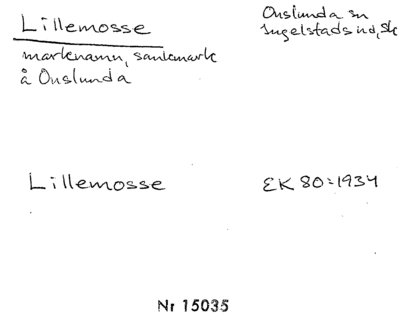 Lillemosse
Onslunda sn
Ingelstads hd, Sk
marknamn, sankmark
å Onslunda
Lillemosse
EK 80:1934
Nr 15035